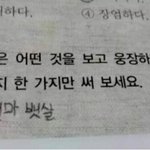 하다. ④ 장엄하다.
은 어떤 것을 보고 웅장하
지 한 가지만 써 보세요.
과 뱃살